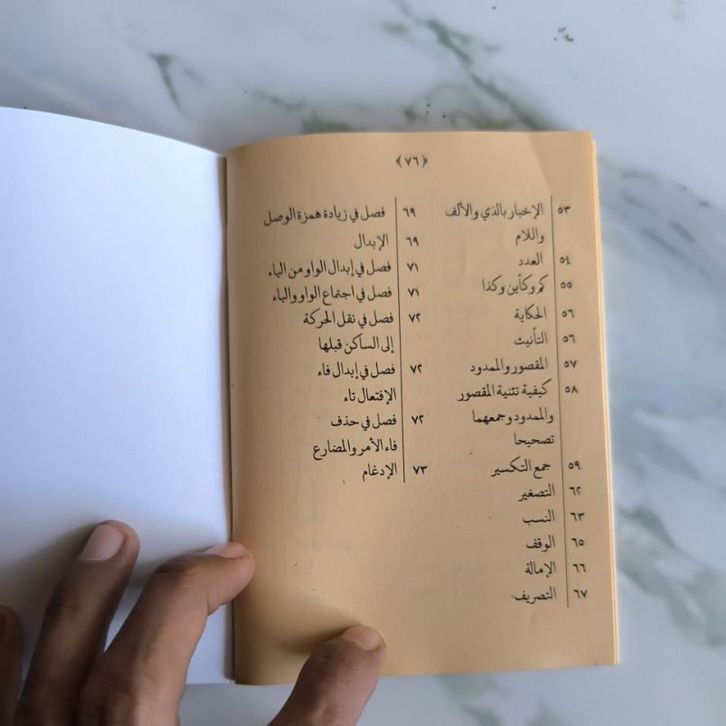 ﴿٧٦﴾
٥٣ الإخبار بالذي والألف
واللام
٥٤ العدد
٥٥ كم وكأين وكذا
٥٦ الحكاية
٥٦ التأنيث
٥٧ المقصور والممدود
٥٨ كيفية تثنية المقصور
والممدود وجمعهما
تصحيحا
٥٩ جمع التكسير
٦٢ التصغير
٦٣ النسب
٦٥ الوقف
٦٦ الإمالة
٦٧ التصريف
٦٩ فصل في زيادة همزة الوصل
٦٩ الإبدال
٧١ فصل في إبدال الواو من الياء
٧١ فصل في اجتماع الواو والياء
٧٢ فصل في نقل الحركة
إلى الساكن قبلها
٧٢ فصل في إبدال فاء
الإفتعال تاء
٧٢ فصل في حذف
فاء الأمر والمضارع
٧٣ الإدغام